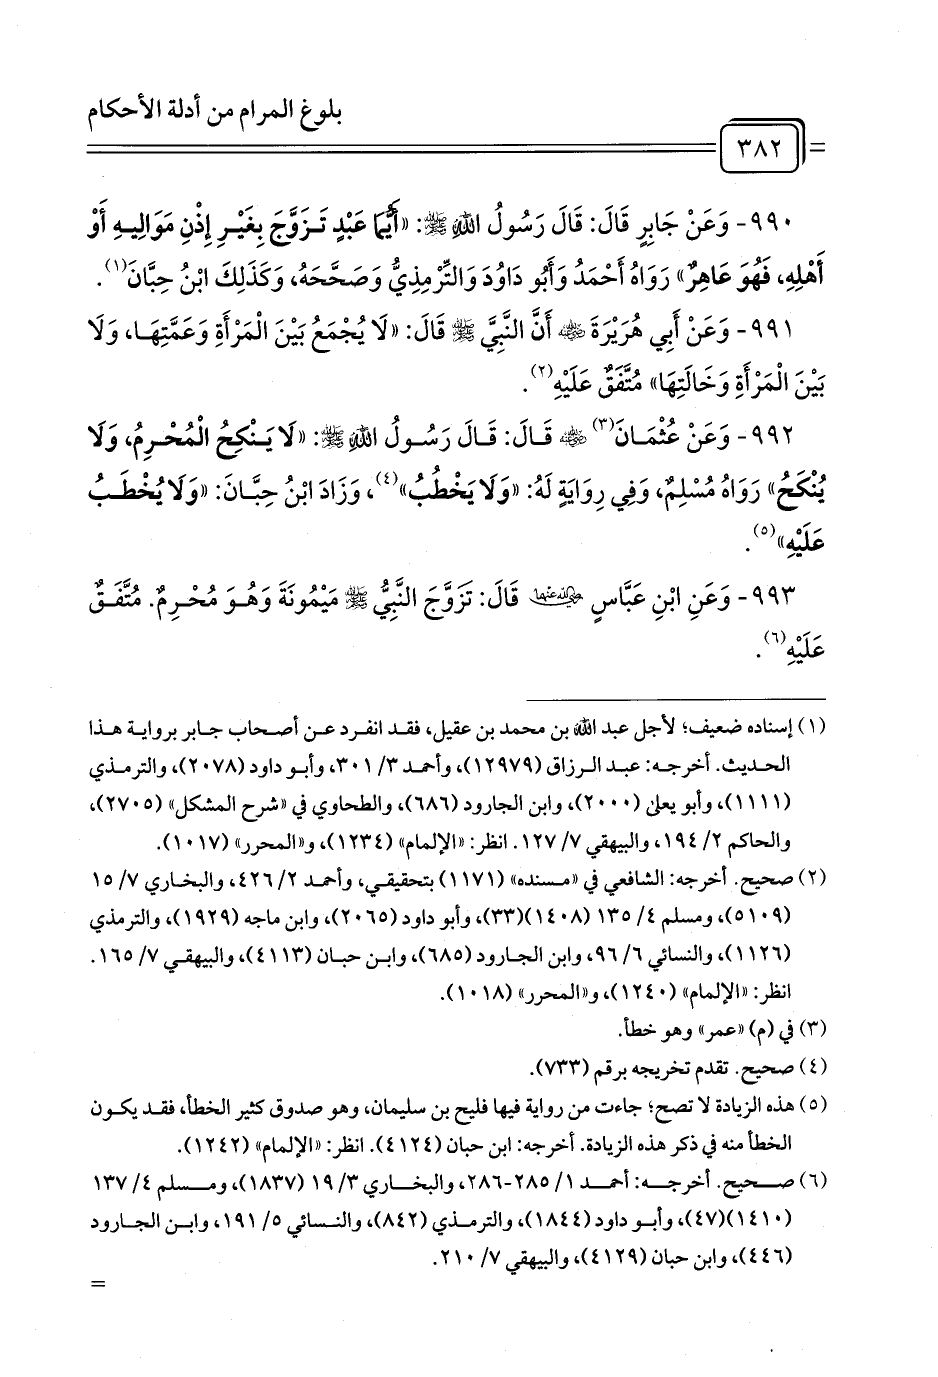 بلوغ المرام من أدلة الأحكام
٣٨٢
٩٩٠- وَعَنْ جَابِرٍ قَالَ: قَالَ رَسُولُ اللهِ ﷺ: «أَيُّمَا عَبْدٍ تَـزَوَّجَ بِغَيْـرِ إِذْنِ مَوَالِيـهِ أَوْ
أَهْلِهِ، فَهُوَ عَاهِرٌ» رَوَاهُ أَحْمَدُ وَأَبُو دَاوُدَ وَالتِّرْمِذِيُّ وَصَحَّحَهُ، وَكَذَلِكَ ابْنُ حِبَّانَ(١).
٩٩١- وَعَنْ أَبِي هُرَيْرَةَ ﵁ أَنَّ النَّبِيَّ ﷺ قَالَ: «لَا يُجْمَعُ بَيْنَ الْمَرْأَةِ وَعَمَّتِهَـا، وَلَا
بَيْنَ الْمَرْأَةِ وَخَالَتِهَا» مُتَّفَقٌ عَلَيْهِ(٢).
٩٩٢- وَعَنْ عُثْمَـانَ(٣) ﵁ قَـالَ: قَـالَ رَسُـولُ اللهِ ﷺ: «لَا يَـنْكِحُ الْمُحْـرِمُ، وَلَا
يُنْكَحُ» رَوَاهُ مُسْلِمٌ، وَفِي رِوَايَةٍ لَهُ: «وَلَا يَخْطُبُ»(٤)، وَزَادَ ابْنُ حِبَّـانَ: «وَلَا يُخْطَـبُ
عَلَيْهِ»(٥).
٩٩٣- وَعَنِ ابْنِ عَبَّاسٍ ﵄ قَالَ: تَزَوَّجَ النَّبِيُّ ﷺ مَيْمُونَةَ وَهُـوَ مُحْـرِمٌ. مُتَّفَـقٌ
عَلَيْهِ(٦).
(١) إسناده ضعيف؛ لأجل عبد الله بن محمد بن عقيل، فقـد انفـرد عـن أصـحاب جـابر بروايـة هـذا
الحديث. أخرجه: عبـد الـرزاق (١٢٩٧٩)، وأحمد ٣/ ٣٠١، وأبـو داود (٢٠٧٨)، والترمـذي
(١١١١)، وأبو يعلى (٢٠٠٠)، وابن الجارود (٦٨٦)، والطحاوي في «شرح المشكل» (٢٧٠٥)،
والحاكم ٢/ ١٩٤، والبيهقي ٧/ ١٢٧. انظر: «الإلمام» (١٢٣٤)، و«المحرر» (١٠١٧).
(٢) صحيح. أخرجه: الشافعي في «مسنده» (١١٧١) بتحقيقي، وأحمد ٢/ ٤٢٦، والبخاري ٧/ ١٥
(٥١٠٩)، ومسلم ٤/ ١٣٥ (١٤٠٨)(٣٣)، وأبو داود (٢٠٦٥)، وابن ماجه (١٩٢٩)، والترمذي
(١١٢٦)، والنسائي ٦/ ٩٦، وابن الجارود (٦٨٥)، وابـن حبـان (٤١١٣)، والبيهقـي ٧/ ١٦٥.
انظر: «الإلمام» (١٢٤٠)، و«المحرر» (١٠١٨).
(٣) في (م) «عمر» وهو خطأ.
(٤) صحيح. تقدم تخريجه برقم (٧٣٣).
(٥) هذه الزيادة لا تصح؛ جاءت من رواية فيها فليح بن سليمان، وهو صدوق كثير الخطأ، فقـد يكـون
الخطأ منه في ذكر هذه الزيادة. أخرجه: ابن حبان (٤١٢٤). انظر: «الإلمام» (١٢٤٢).
(٦) صـــحيح. أخرجـــه: أحمـــد ١/ ٢٨٥-٢٨٦، والبخـــاري ٣/ ١٩ (١٨٣٧)، ومـــسلم ٤/ ١٣٧
(١٤١٠)(٤٧)، وأبـو داود (١٨٤٤)، والترمـذي (٨٤٢)، والنـسائي ٥/ ١٩١، وابـن الجـارود
(٤٤٦)، وابن حبان (٤١٢٩)، والبيهقي ٧/ ٢١٠.
=